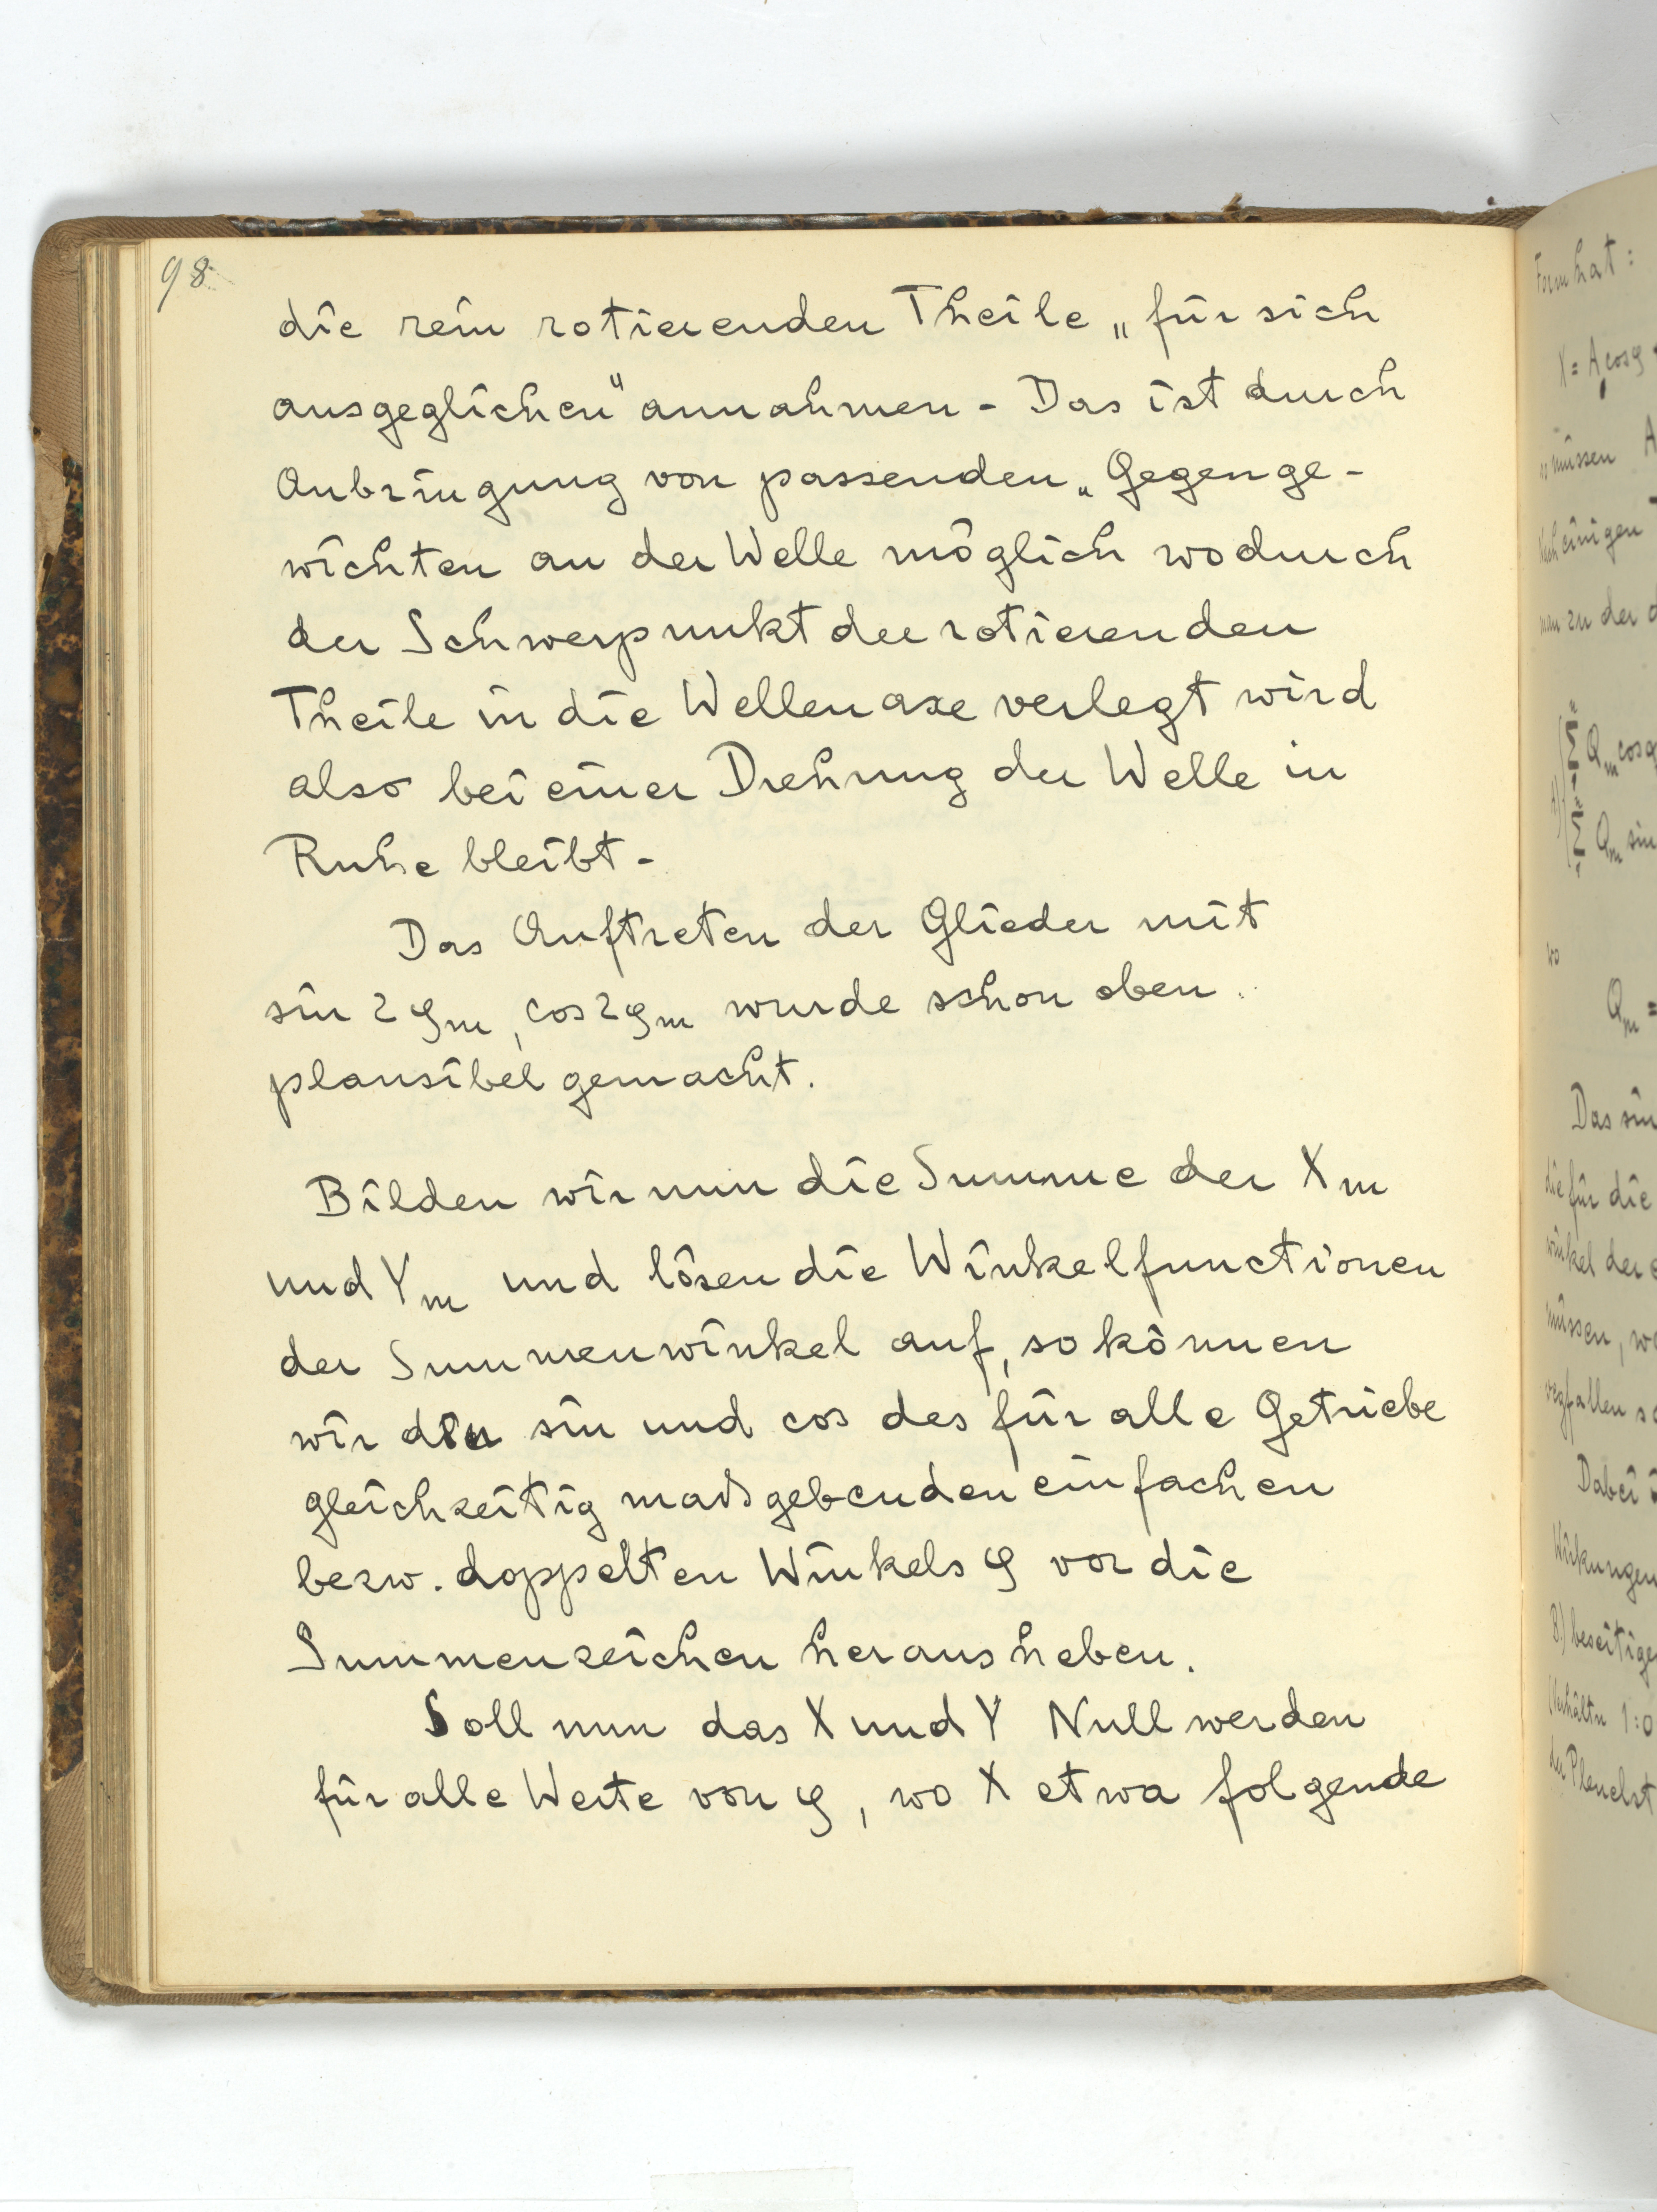 98
die rein rotierenden Theile „für sich
ausgeglichen" annahmen - Das ist durch
Anbringung von passenden „Gegenge-
wichten an der Welle möglich wodurch
der Schwerpunkt der rotierenden
Theile in die Wellenaxe verlegt wird
also bei einer Drehung der Welle in
Ruhe bleibt -
Das Auftreten der Glieder mit
sin 2φm, cos 2φm wurde schon oben
plausibel gemacht.
Bilden wir nun die Summe der Xm
und Ym und lösen die Winkelfunctionen
der Summenwinkel auf, so können
wir den sin und cos des für alle Getriebe
gleichzeitig maßgebenden einfachen
bezw. doppelten Winkels φ vor die
Summenzeichen herausheben.
Soll nun das X und Y Null werden
für alle Werte von φ, wo X etwa folgende
Form hat:
X = A cos φ
müssen A
einigen
man zu der d
Qm cos φ
Qm sin
wo
Qm =
Das sin
die für die
winkel der
müssen, wo
wegfallen so
Dabei i
Wirkungen
B) beseitige
1:0
der Pleuelst